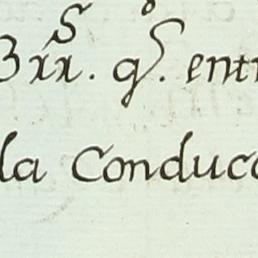 Brr.ˢ qᵒ. entr
la Conduc